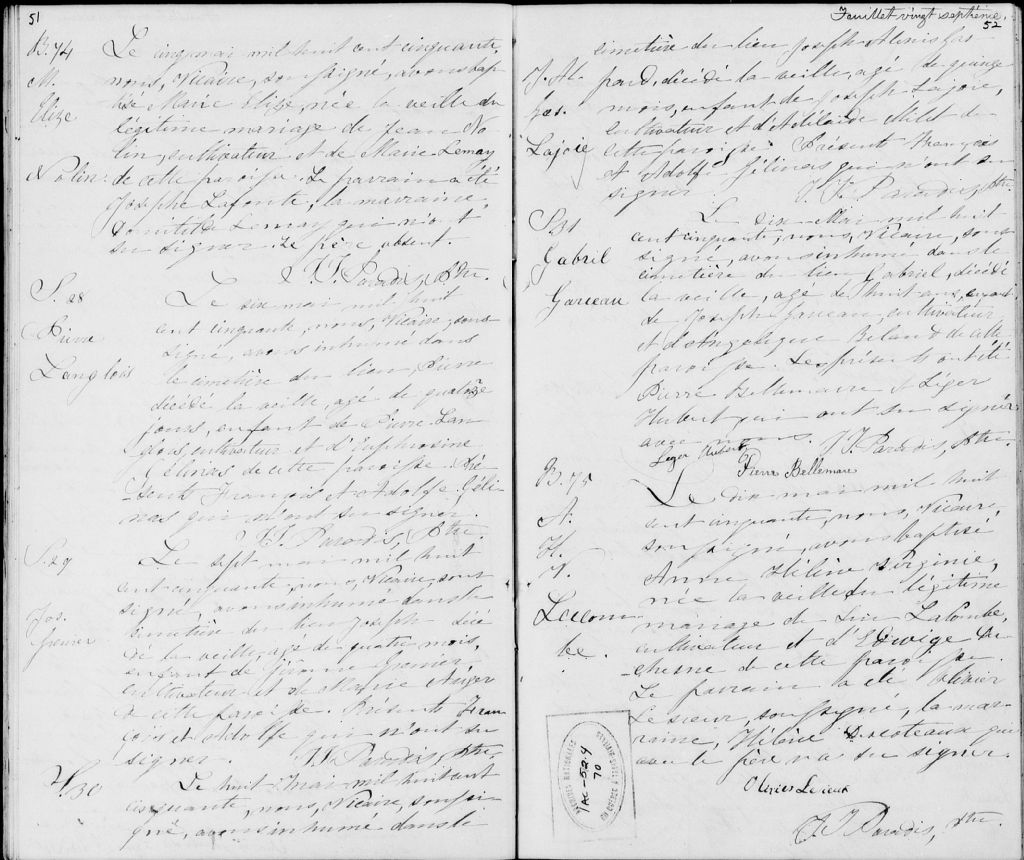 51
B. 74
M.
Elize
Nolin
Le cinq mai mil huit cent cinquante,
nous, Vicaire, soussigné, avons bap
tisé Marie Elize, née la veille du
légitime mariage de Jean No
lin, cultivateur et de Marie Lemay
de cette paroisse. Le parrain a été
Joseph Lafonte, la marraine,
Lemay qui n'ont
su signer. Le père absent.
J. J. Paradis, Ptre.
S. 28
Pierre
Langlois
Le six mai mil huit
cent cinquante, nous, Vicaire, sous
signé, avons inhumé dans
le cimetière du lieu Pierre
décédé la veille, agé de quatorze
jours, enfant de Pierre Lan
glois, cultivateur et d'Euphrosine
Gélinas de cette paroisse. Pré
sents François et Adolfe Géli
nas qui n'ont su signer.
J. J. Paradis, Ptre.
S. 29
Jos.
Grenier
Le sept mai mil huit
cent cinquante, nous, Vicaire, sous
signé, avons inhumé dans le
cimetière du lieu Joseph décé
dé la veille, agé de quatre mois,
enfant de Grenier,
cultivateur et de Marie Auger
de cette paroisse. Présents Fran
çois et Adolfe qui n'ont su
signer. J. J. Paradis, Ptre.
S. 30
Le huit mai mil huit cent
cinquante, nous, Vicaire, soussi
gné, avons inhumé dans le
Feuillet vingt septième.
52
J. Al.
Gas.
Lajoie
cimetière du lieu Joseph Gas
pard, décédé la veille, agé de quinze
mois, enfant de Joseph Lajoie,
cultivateur et d'Adélaïde Milet de
cette paroisse. Présents François
et Adolfe Gélinas qui n'ont su
signer. J. J. Paradis, Ptre
S 31
Gabriel
Garceau
Le six Mai mil huit
cent cinquante, nous, Vicaire, sous
signé, avons inhumé dans le
cimetière du lieu Gabriel, décédé
la veille, agé de huit ans, enfant
de Joseph Garceau, cultivateur
et d'Angélique Beland de cette
paroisse. Les présents ont été
Pierre Bellemare et Léger
Hubert qui ont su signer
avec nous. J. J. Paradis, Ptre
Léger Hubert
Pierre Bellemare
B. 75
A.
H.
V.
Lacom
be.
Le dix mai mil huit
cent cinquante, nous, Vicaire,
soussigné, avons baptisé
Anne Hélène Virginie,
née la veille du légitime
mariage de Luc Lacombe,
cultivateur et d'Edwige Du
chesne de cette paroisse.
Le parrain a été Olivier
Lesieur, soussigné, la mar
raine, Hélène qui
avec le père n'a su signer.
Olivier Lesieur
J. J. Paradis, Ptre.
ARCHIVES NATIONALES
AC-52.4
70